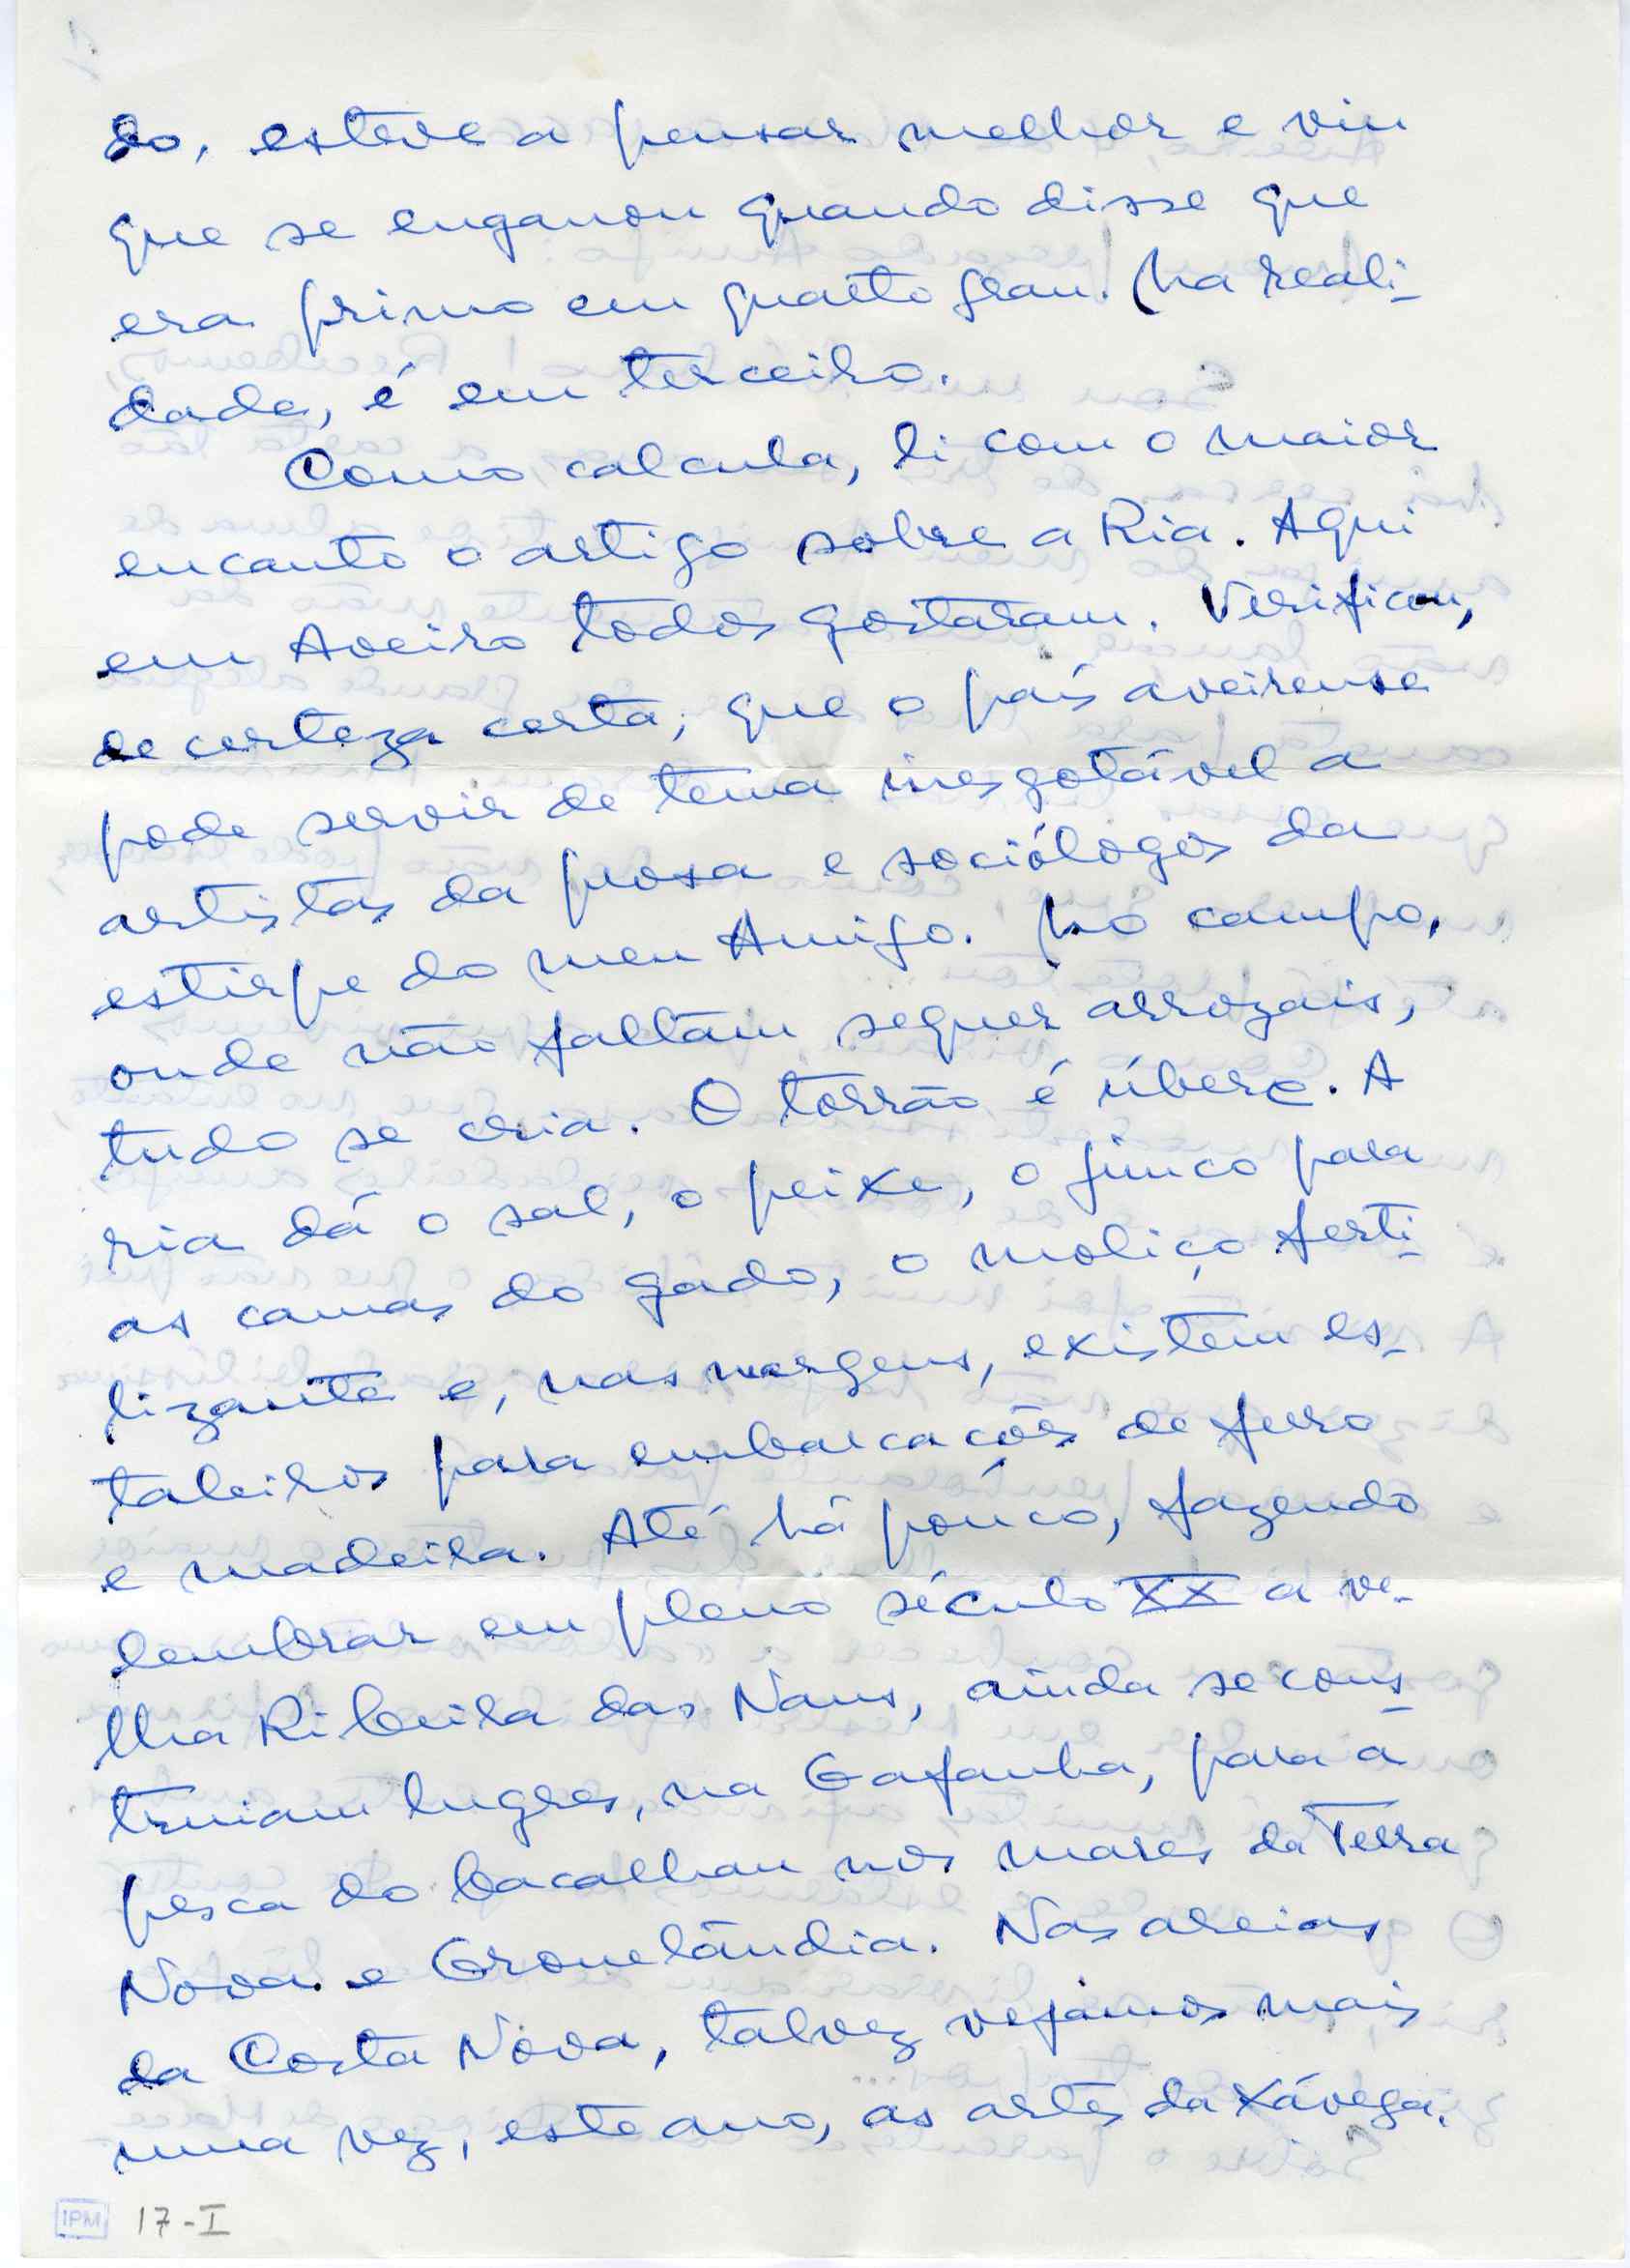 do, esteve a pensar melhor e viu
que se enganou quando disse que
era primo em quarto grau. Na reali-
dade, é em terceiro.
Como calcula, li com o maior
encanto o artigo sobre a Ria. Aqui
em Aveiro todos gostaram. Verificou,
de certeza certa, que o país aveirense
pode servir de tema inesgotável a
artistas da prosa e sociólogos da
estirpe do meu Amigo. No campo,
onde não faltam sequer arrozais,
tudo se cria. O torrão é úbere. A
ria dá o sal, o peixe, o junco para
as camas do gado, o moliço ferti-
lizante e, nas margens, existem es-
taleiros para embarcações de ferro
e madeira. Até há pouco, fazendo
lembrar em pleno século XX a ve-
lha Ribeira das Naus, ainda se cons-
truiam lugres, na Gafanha, para a
pesca do bacalhau nos mares da Terra
Nova e Gronelândia. Nas areias
da Costa Nova, talvez vejamos mais
uma vez, este ano, as artes da xávega.
IPM 17-I